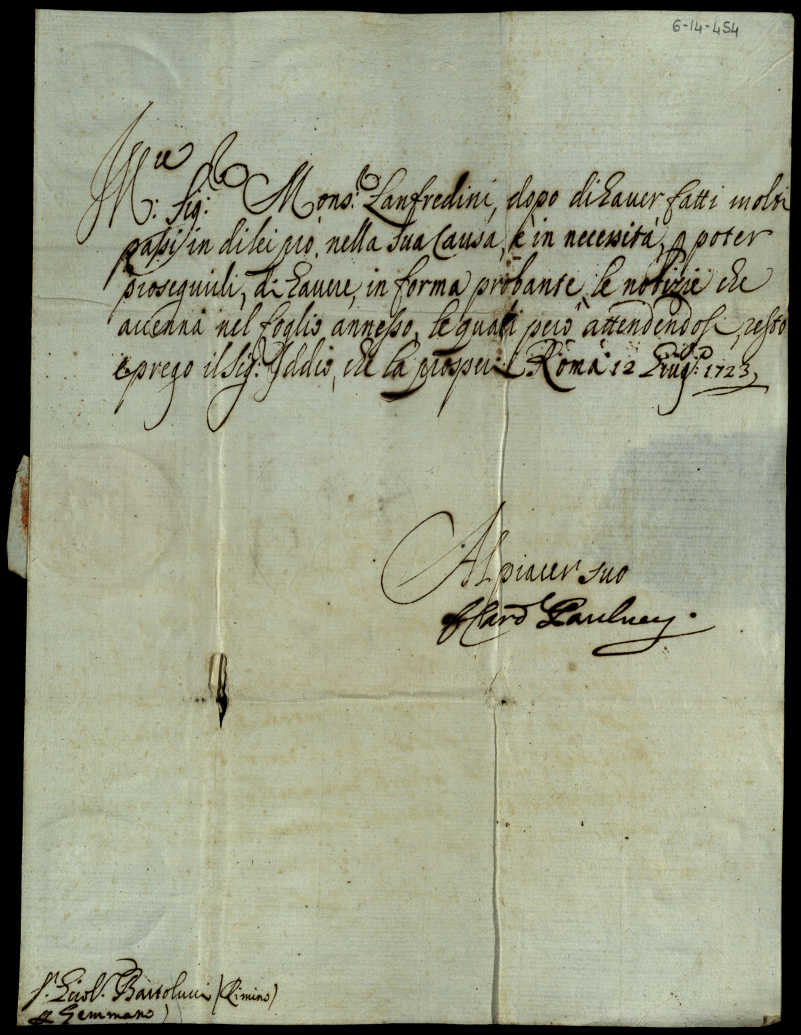 6-14-454
M.re Sig.re Mons.r Lanfredini, dopo di haver fatti molti
passi in di lei prò, nella sua Causa, è in necessità, p poter
proseguirli, di havere, in forma probante, le notizie che
accenna nel foglio annesso, le quali però attendendosi, resto
e prego il Sig.r Iddio, che la prosperi. Roma 12 Giug.o 1723,
Al piacer suo
Card.l
S.r Girol.o Bartolucci (Rimino)
Gemmano)